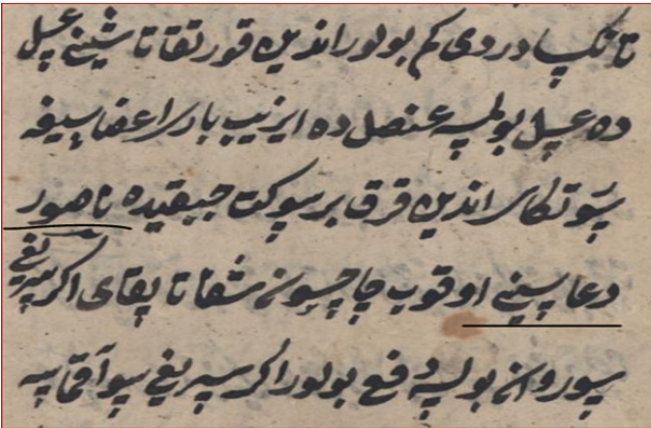 تانکپا دردی کم بولور اندین قورتقاتا شینی عسل
ده عسل بولمسه عنصل ده ایزیب بارر اعضاسیغه
سورتکای اندین قرق بر سوکت چیبقیده ناصور
دعاسینی اوقوب چاچسونه شفا تاپقای اکر سریغی
سوروانه بولسه دفع بولور اکر سریغی سو آقماسه